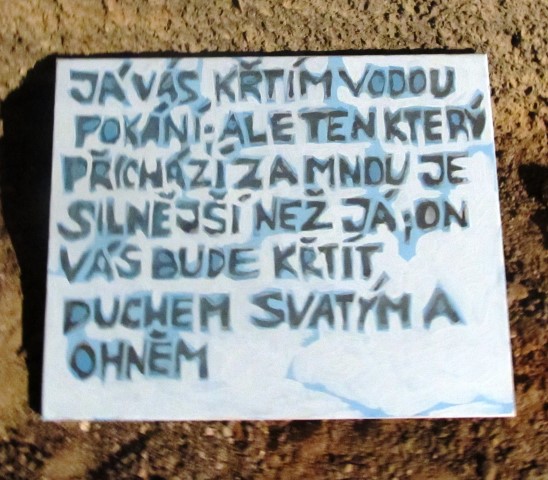 JÁ VÁS KŘTÍM VODOU
POKÁNÍ; ALE TEN KTERÝ
PŘICHÁZÍ ZA MNOU JE
SILNĚJŠÍ NEŽ JÁ; ON
VÁS BUDE KŘTÍT
DUCHEM SVATÝM A
OHNĚM